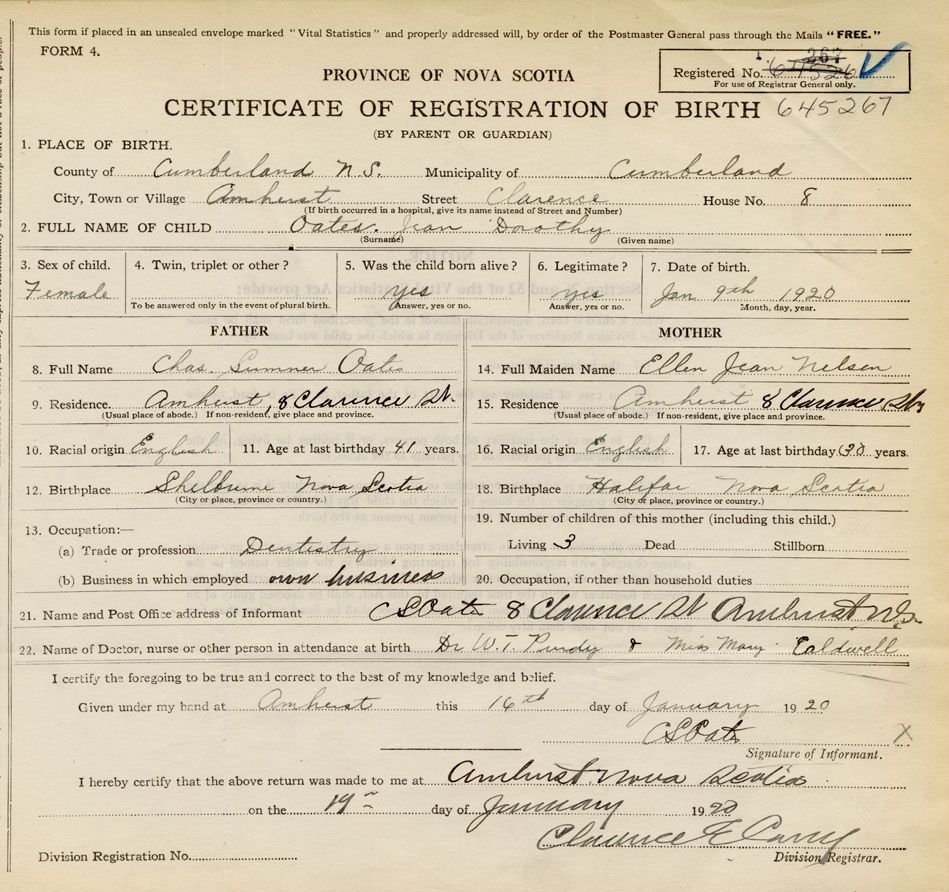 This form if placed in an unsealed envelope marked "Vital Statistics" and properly addressed will, by order of the Postmaster General pass through the Mails "FREE."
FORM 4.
267
Registered No.
For use of Registrar General only.
PROVINCE OF NOVA SCOTIA
CERTIFICATE OF REGISTRATION OF BIRTH 645267
(BY PARENT OR GUARDIAN)
1. PLACE OF BIRTH.
County of Cumberland N.S. Municipality of Cumberland
City, Town or Village Amherst Street Clarence House No. 8
(If birth occurred in a hospital, give its name instead of Street and Number)
2. FULL NAME OF CHILD Oates. Jean Dorothy
(Surname) (Given name)
3. Sex of child. 4. Twin, triplet or other ? 5. Was the child born alive ? 6. Legitimate ? 7. Date of birth.
Female yes yes Jan 9th 1920
To be answered only in the event of plural birth. Answer, yes or no. Answer, yes or no. Month, day, year.
FATHER MOTHER
8. Full Name Chas. Sumner Oates 14. Full Maiden Name Ellen Jean Nelsen
9. Residence. Amherst, 8 Clarence St. 15. Residence Amherst 8 Clarence St.
(Usual place of abode.) If non-resident, give place and province. (Usual place of abode.) If non-resident, give place and province.
10. Racial origin English 11. Age at last birthday 41 years. 16. Racial origin English 17. Age at last birthday 30 years.
12. Birthplace Shelburne Nova Scotia 18. Birthplace Halifax Nova Scotia
(City or place, province or country.) (City or place, province or country.)
13. Occupation:— 19. Number of children of this mother (including this child.)
(a) Trade or profession Dentistry Living 3 Dead Stillborn
(b) Business in which employed own business 20. Occupation, if other than household duties
21. Name and Post Office address of Informant CSOates 8 Clarence St Amherst N.S.
22. Name of Doctor, nurse or other person in attendance at birth Dr W.T. Purdy & Miss Mary Caldwell
I certify the foregoing to be true and correct to the best of my knowledge and belief.
Given under my hand at Amherst this 16th day of January 1920
CSOates
Signature of Informant.
I hereby certify that the above return was made to me at Amherst Nova Scotia
on the 19th day of January 1920
Clarence E
Division Registration No. Division Registrar.